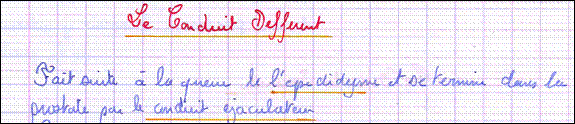 Le Conduit Defferent
Fait suite à la queue de l'epididyme et se termine dans la
prostate par le conduit ejaculateur